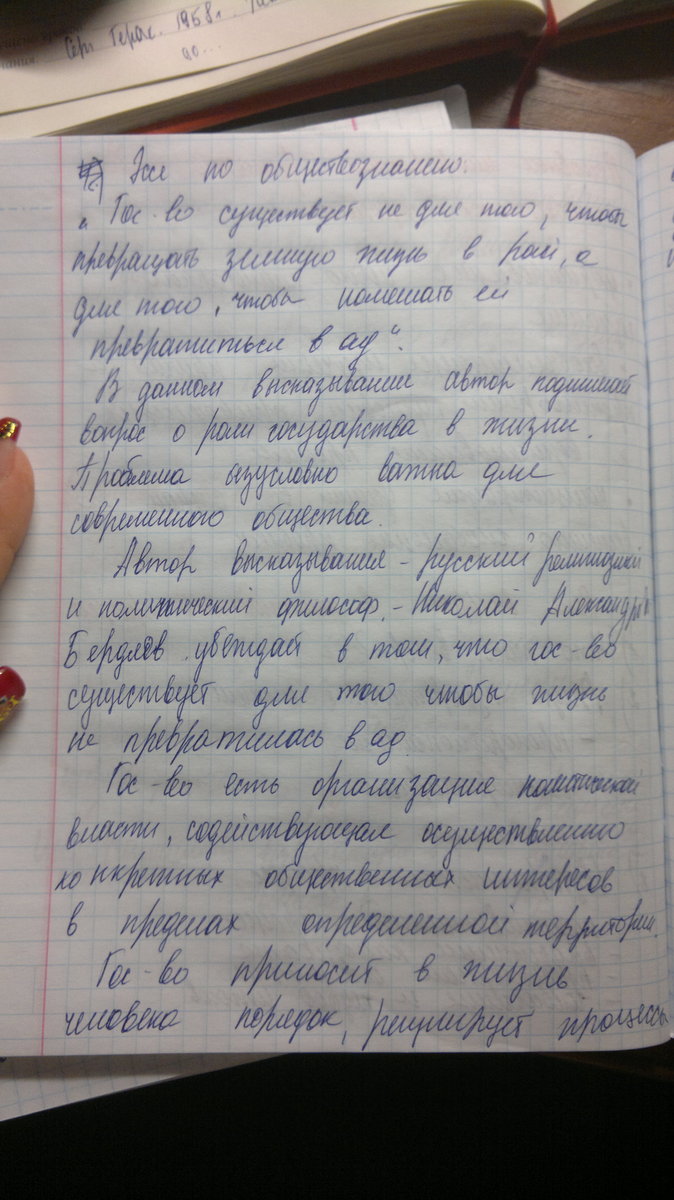 Герох. 1958г.
до...
Эссе по обществознанию.
„Гос-во существует не для того, чтобы
превращать земную жизнь в рай, а
для того, чтобы помешать ей
превратиться в ад“.
В данном высказывании автор поднимает
вопрос о роли государства в жизни.
Проблема безусловно важна для
современного общества.
Автор высказывания - русский религиозный
и политический философ. - Николай
Бердяев убеждает в том, что гос-во
существует для того чтобы жизнь
не превратилась в ад.
Гос-во есть организация политической
власти, содействующая осуществлению
конкретных общественных интересов
в пределах определенной территории.
Гос-во приносит в жизнь
человека порядок, регулирует процессы